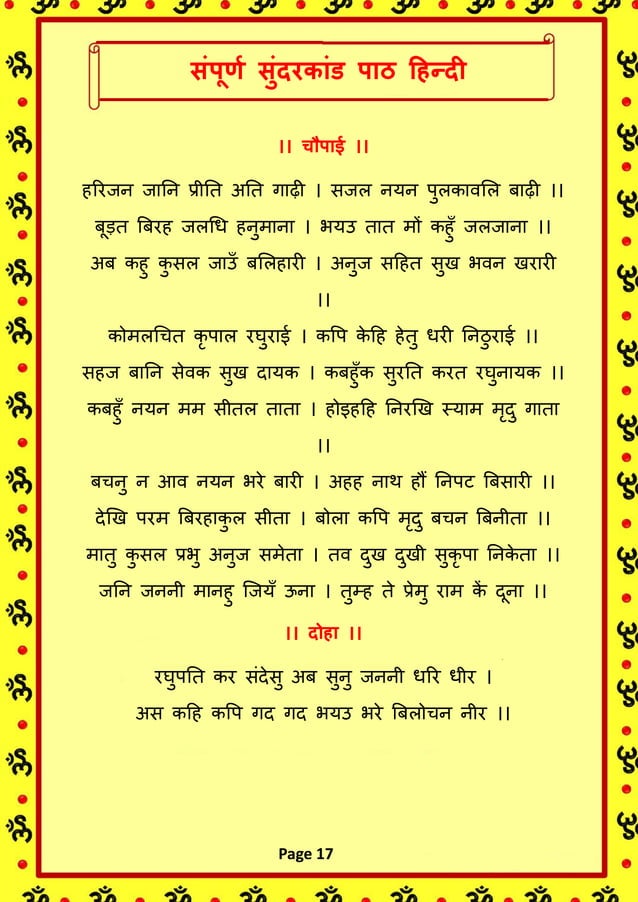 संपूर्ण सुंदरकांड पाठ हिन्दी
।। चौपाई ।।
हरिजन जानि प्रीति अति गाढ़ी । सजल नयन पुलकावलि बाढ़ी ।।
बूड़त बिरह जलधि हनुमाना । भयउ तात मों कहुँ जलजाना ।।
अब कहु कुसल जाउँ बलिहारी । अनुज सहित सुख भवन खरारी
।।
कोमलचित कृपाल रघुराई । कपि केहि हेतु धरी निठुराई ।।
सहज बानि सेवक सुख दायक । कबहुँक सुरति करत रघुनायक ।।
कबहुँ नयन मम सीतल ताता । होइहहि निरखि स्याम मृदु गाता
।।
बचनु न आव नयन भरे बारी । अहह नाथ हौं निपट बिसारी ।।
देखि परम बिरहाकुल सीता । बोला कपि मृदु बचन बिनीता ।।
मातु कुसल प्रभु अनुज समेता । तव दुख दुखी सुकृपा निकेता ।।
जनि जननी मानहु जियँ ऊना । तुम्ह ते प्रेमु राम कें दूना ।।
।। दोहा ।।
रघुपति कर संदेसु अब सुनु जननी धरि धीर ।
अस कहि कपि गद गद भयउ भरे बिलोचन नीर ।।
Page 17